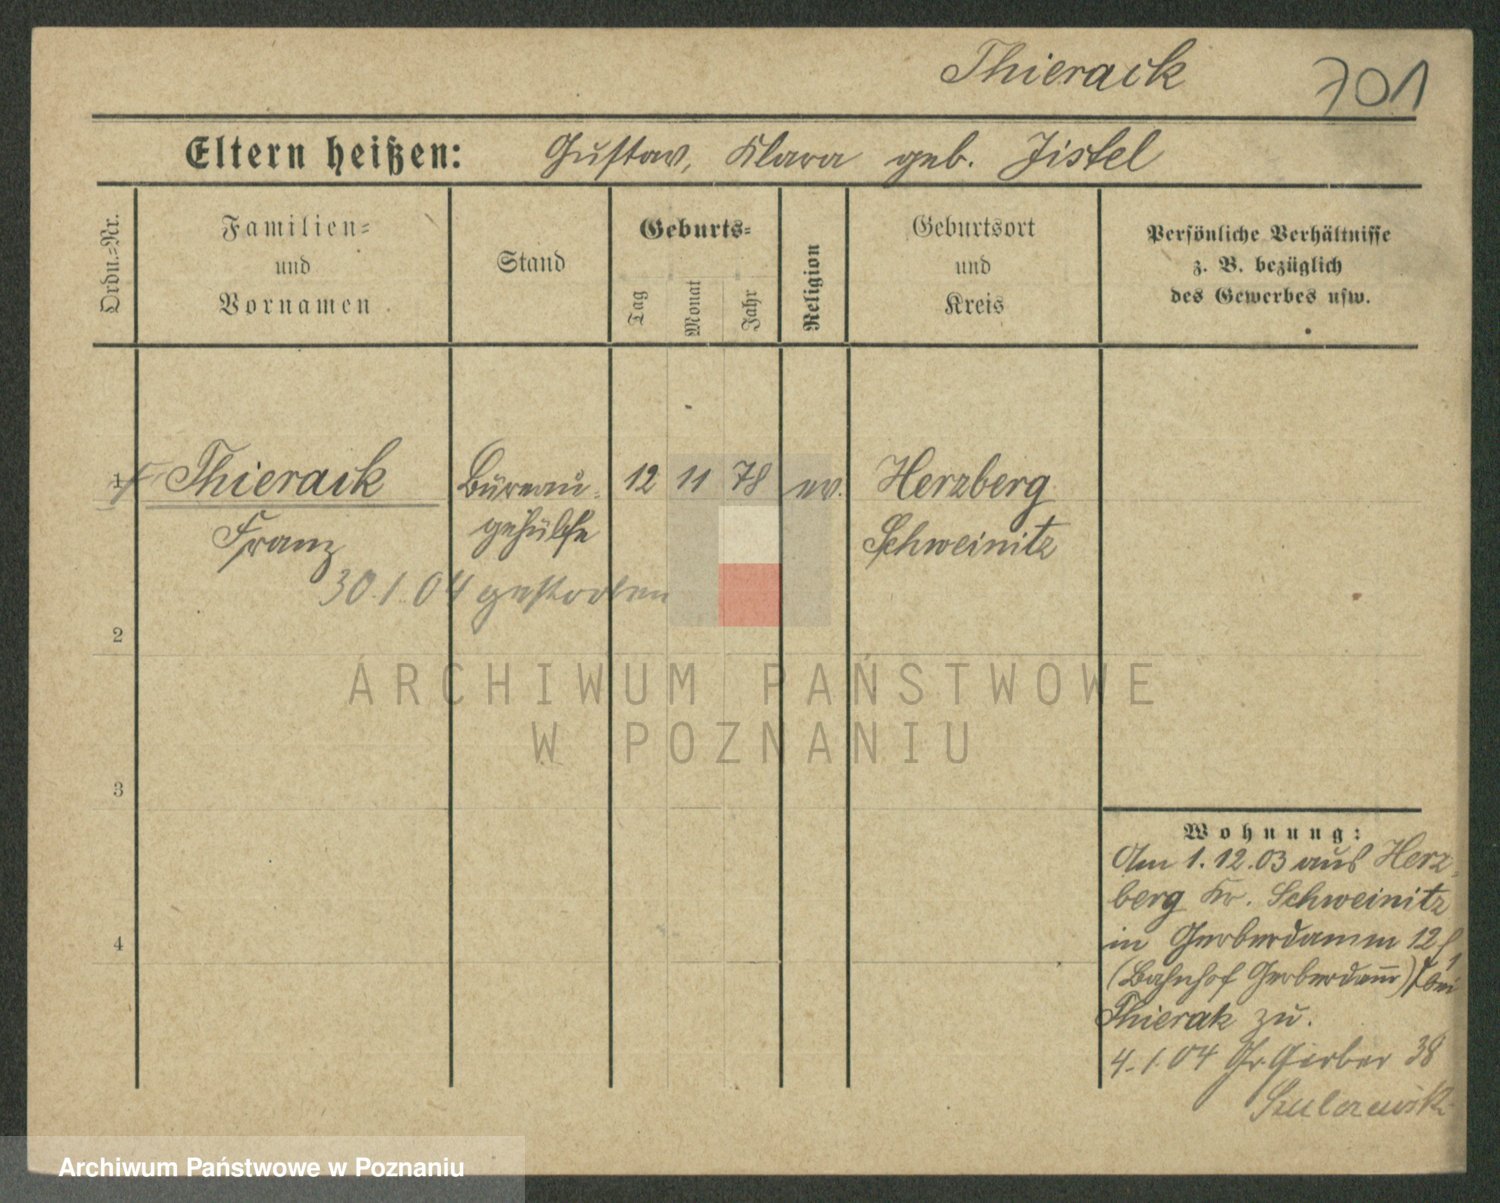 Thierack 701
Eltern heißen: Gustav, Klara geb. Zistel
Ordn.-Nr.
Familien=
und
Vornamen
Stand
Geburts=
Tag
Monat
Jahr
Religion
Geburtsort
und
Kreis
Persönliche Verhältnisse
z. B. bezüglich
des Gewerbes usw.
1 Thierack Büreau- 12 11 78 ev. Herzberg
Franz gehülfe Schweinitz
30.1.04 gestorben
2
3
4
ARCHIWUM PAŃSTWOWE
W POZNANIU
Wohnung:
Am 1.12.03 aus Herz-
berg Kr. Schweinitz
in Gerberdamm 12
(Bahnhof Gerberdamm) bei
Thierak zu.
4.1.04 Gr. Gerber 38
Archiwum Państwowe w Poznaniu